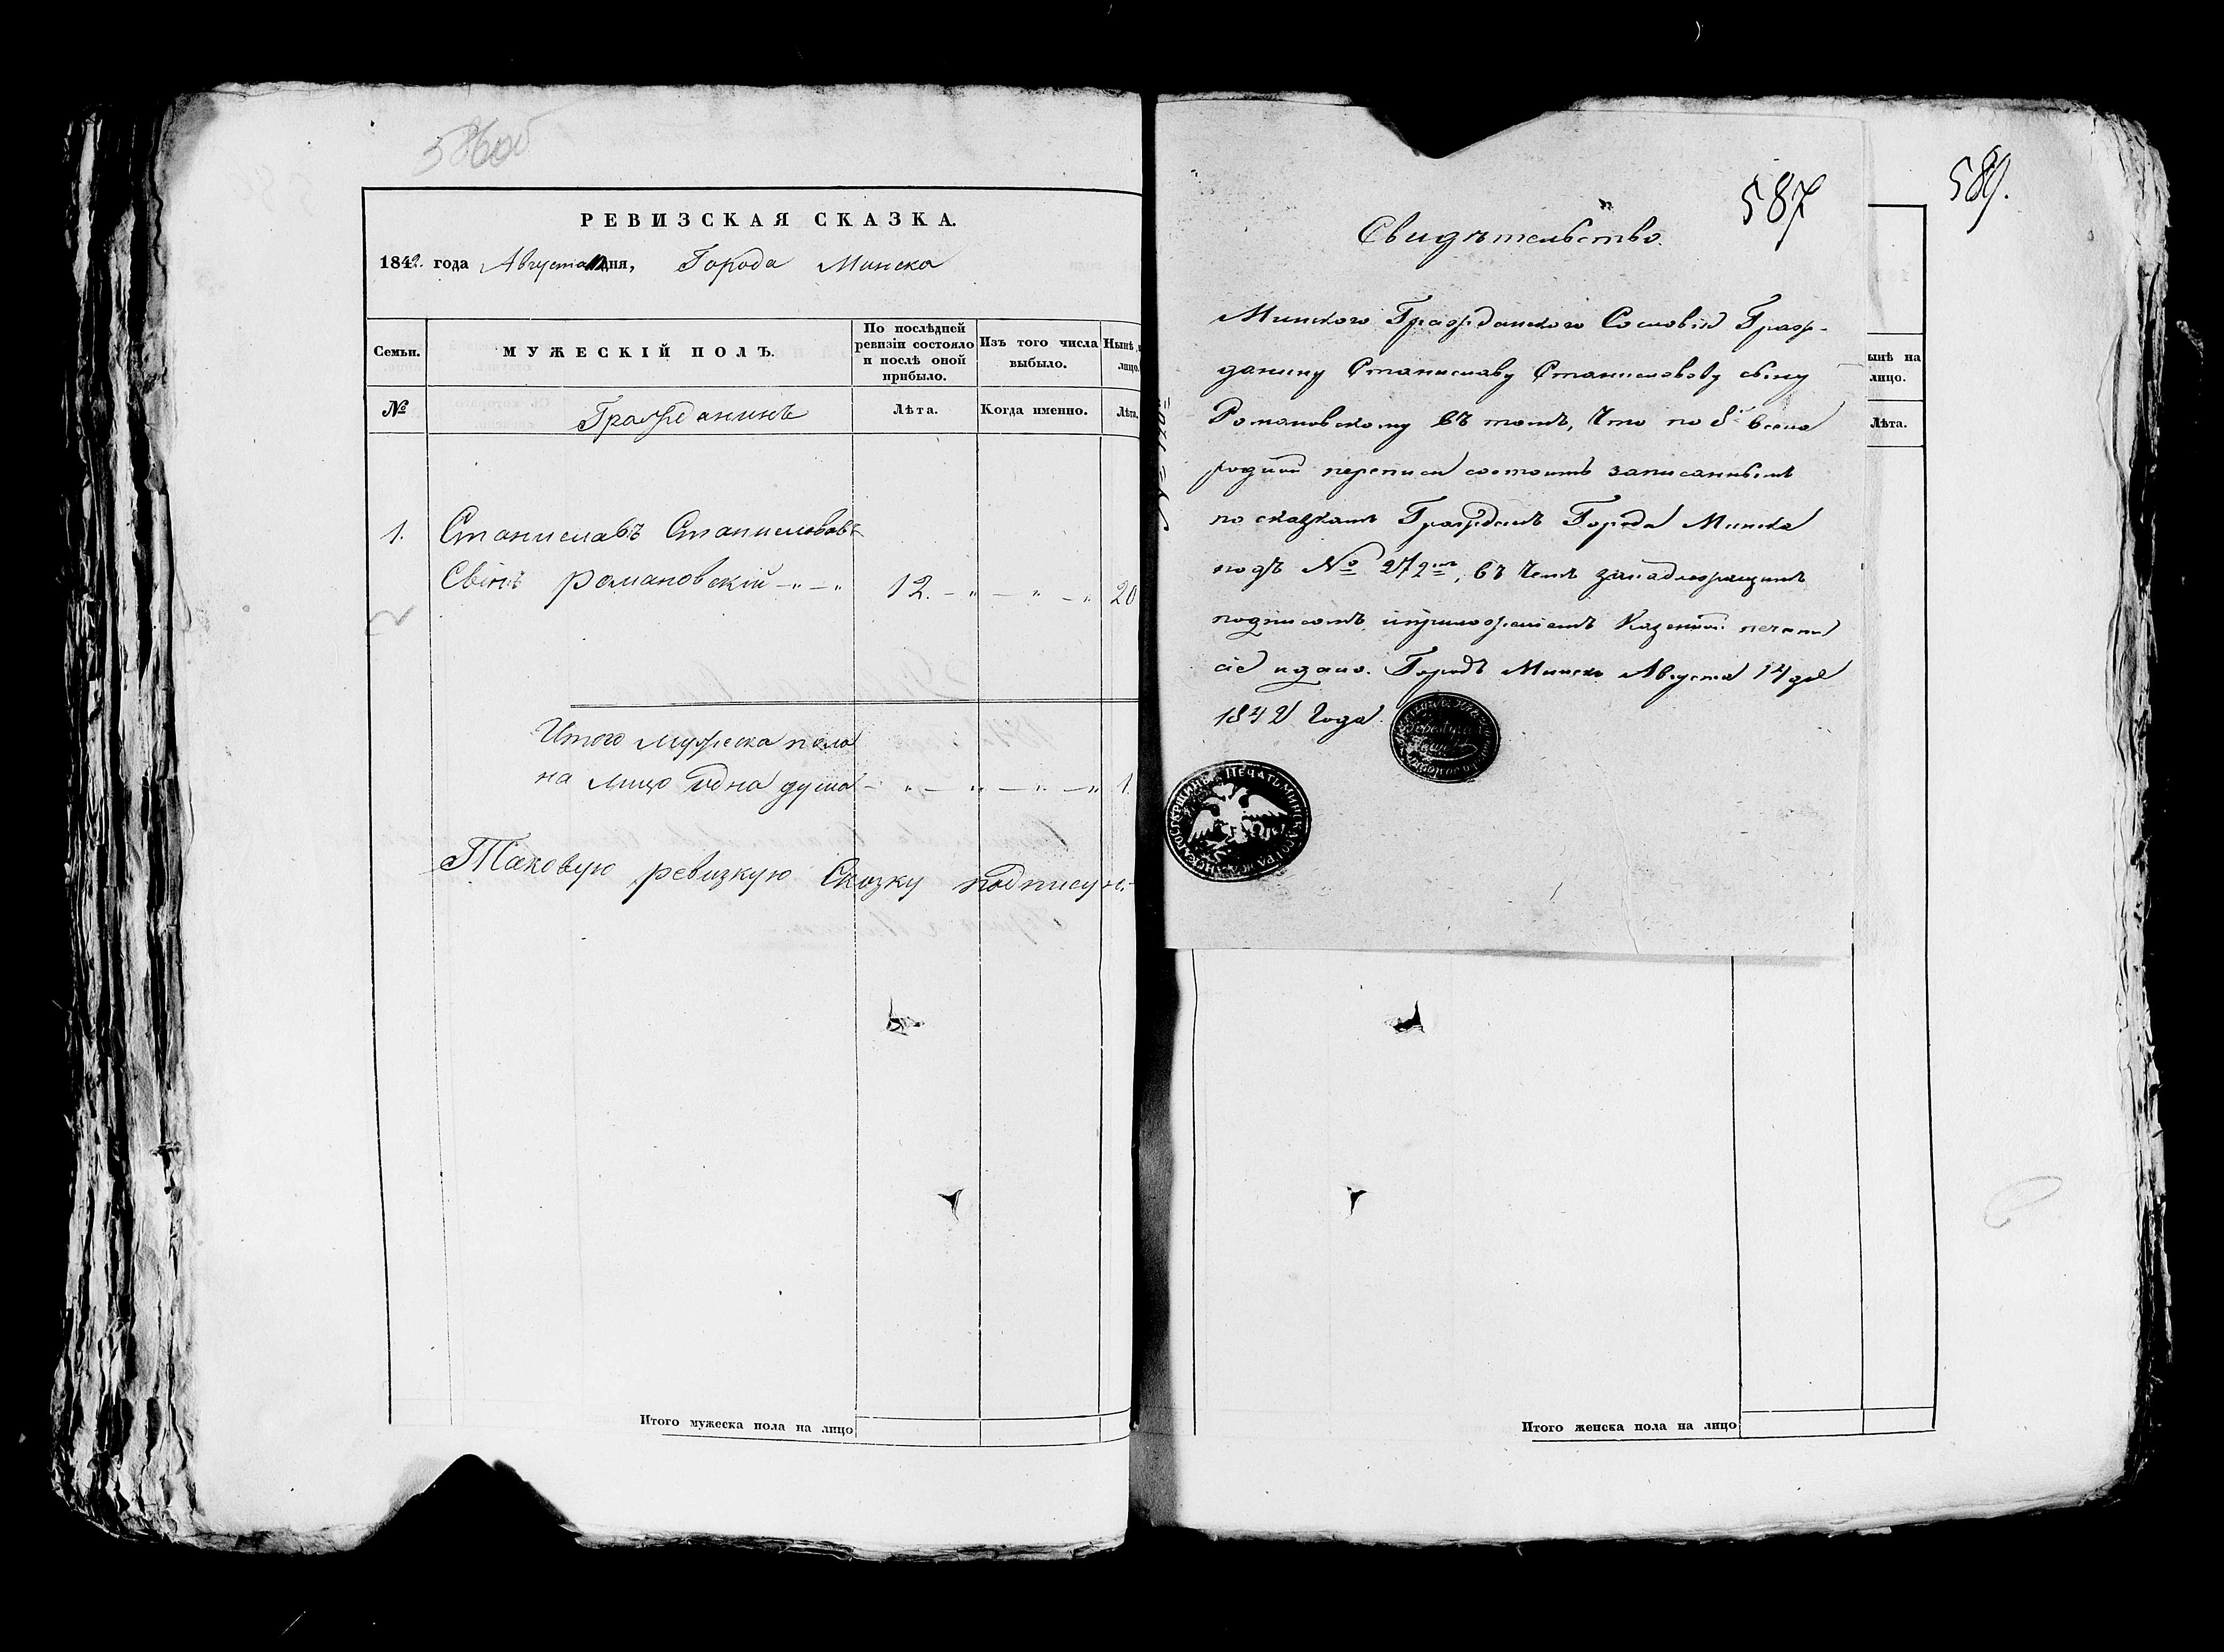 586об
РЕВИЗСКАЯ СКАЗКА.
1842. года Августа дня, Города Минска
Семьи.
МУЖЕСКІЙ ПОЛЪ.
По послѣдней ревизіи состояло и послѣ оной прибыло.
Изъ того числа выбыло.
Нынѣ лицо.
№
Гражданинъ
Лѣта.
Когда именно.
Лѣта.
1. Станиславъ Станиславовъ
Сынъ Романовскій 12. 20
Итого мужеска пола
на лицо одна душа 1.
Таковую ревизкую Сказку подписую
Итого мужеска пола на лицо
587
Свидѣтельство.
Минского Гражданского Сословія Граж-
данину Станиславу Станиславову сыну
Романовскому въ томъ, что по 8й всена
родной переписи состоитъ записаннымъ
по сказкамъ Гражданъ Города Минска
подъ № 272мъ, въ чемъ занадлежащимъ
подписомъ иприложеніемъ Казенной печати
сіе идано. Городъ Минскъ Августа 14 дня
1842 Года.
ПЕЧАТЬ МИНСКАГО
589.
ынѣ на
лицо.
Лѣта.
Итого женска пола на лицо